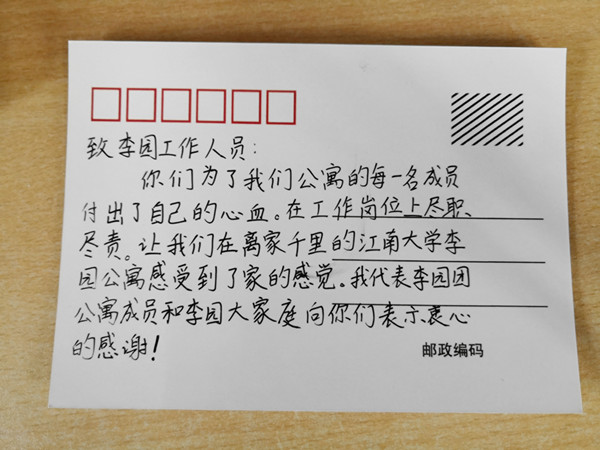 致李园工作人员:
你们为了我们公寓的每一名成员
付出了自己的心血。在工作岗位上尽职、
尽责。让我们在离家千里的江南大学李
园公寓感受到了家的感觉。我代表李园团
公寓成员和李园大家庭向你们表示衷心
的感谢!
邮政编码